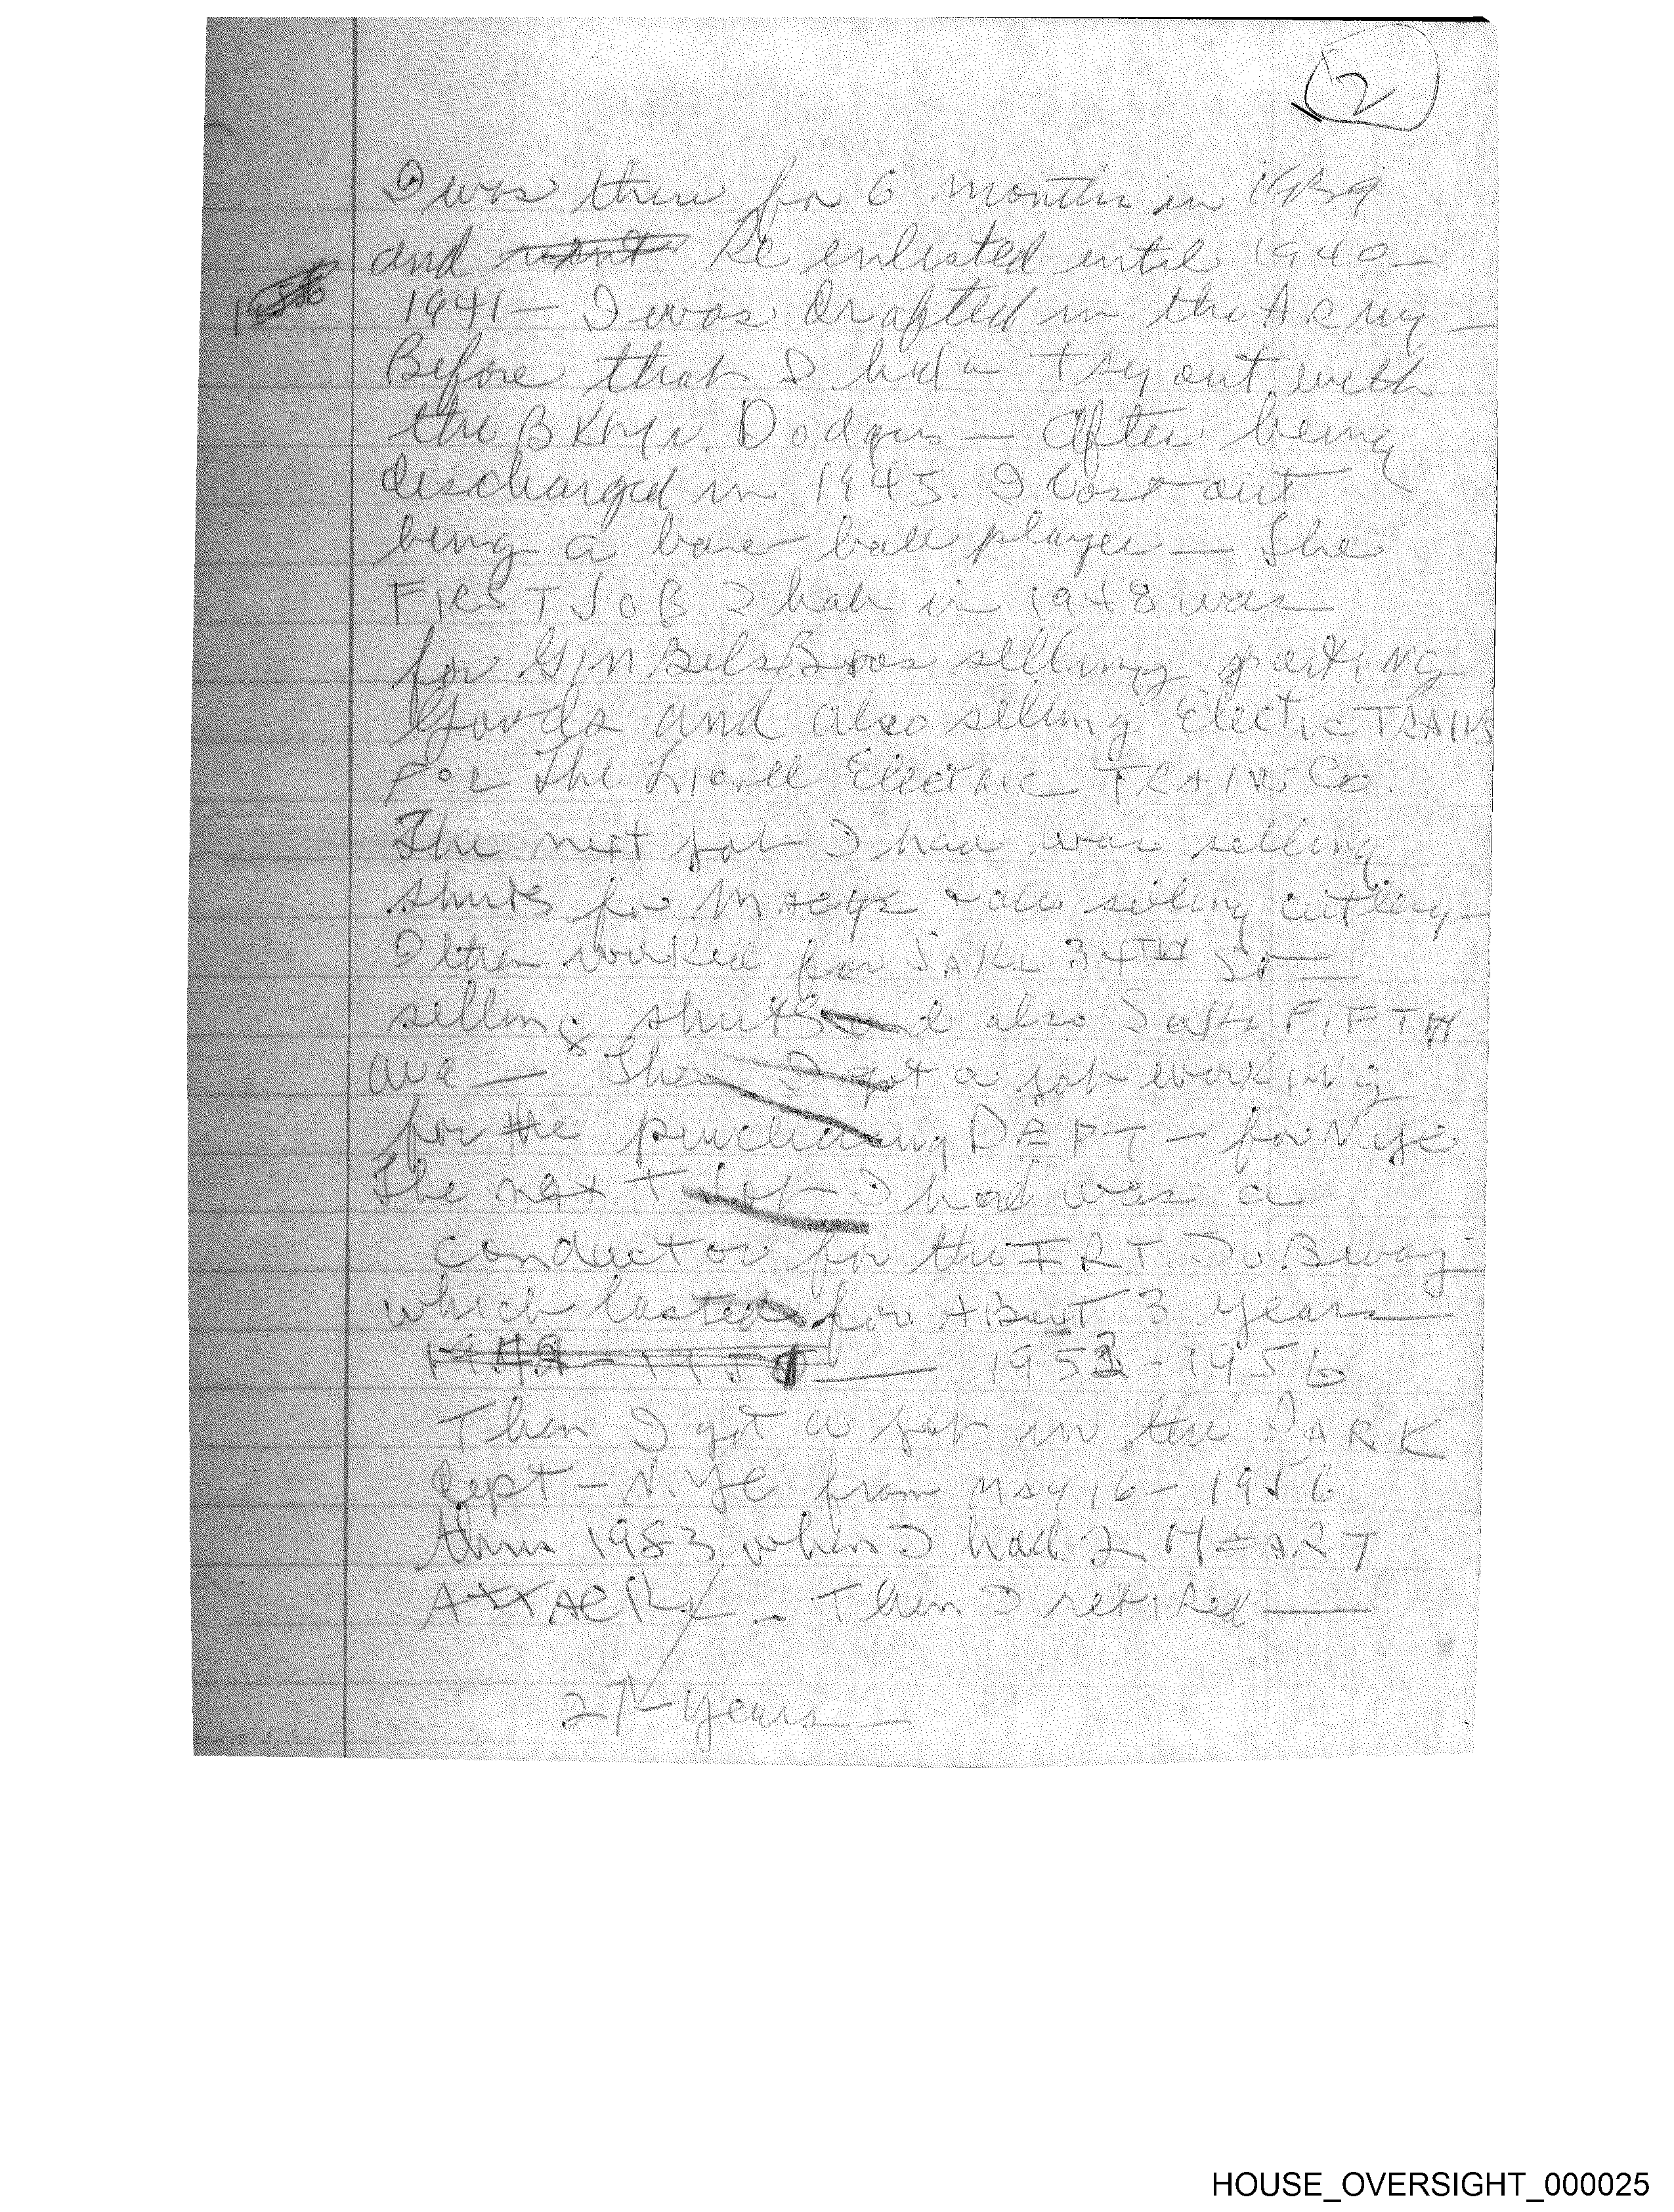 2
I was there for 6 months in 1939
and went Re enlisted until 1940 -
1941 - I was drafted in the ARmy -
Before that I had a try out with
the BKlyn. Dodgers - after being
discharged in 1945. I lost out
being a base ball player - The
FIRST JOB I had in 1948 was
for GimBels Bros selling sporting
Goods and also selling Electic TRAINS
FOR The Lionel Electric TRAIN Co.
The next job I had was selling
shirts for Macys also selling cutlery -
I then worked for SAKs 34TH St -
selling shirts and also Saks FIFTH
ave - & Then I got a job working
for the purchasing DEPT - for N.Y.C.
The next job - I had was a
conductor for the IRT. SuBway
which lasted for ABout 3 years
1953 - 1956
Then I got a job in the PARK
dept - N.Y.C. from May 16 - 1956
thru 1983 when I had 2 HEART
ATTACKs - Then I retired -
27 years -
HOUSE_OVERSIGHT_000025